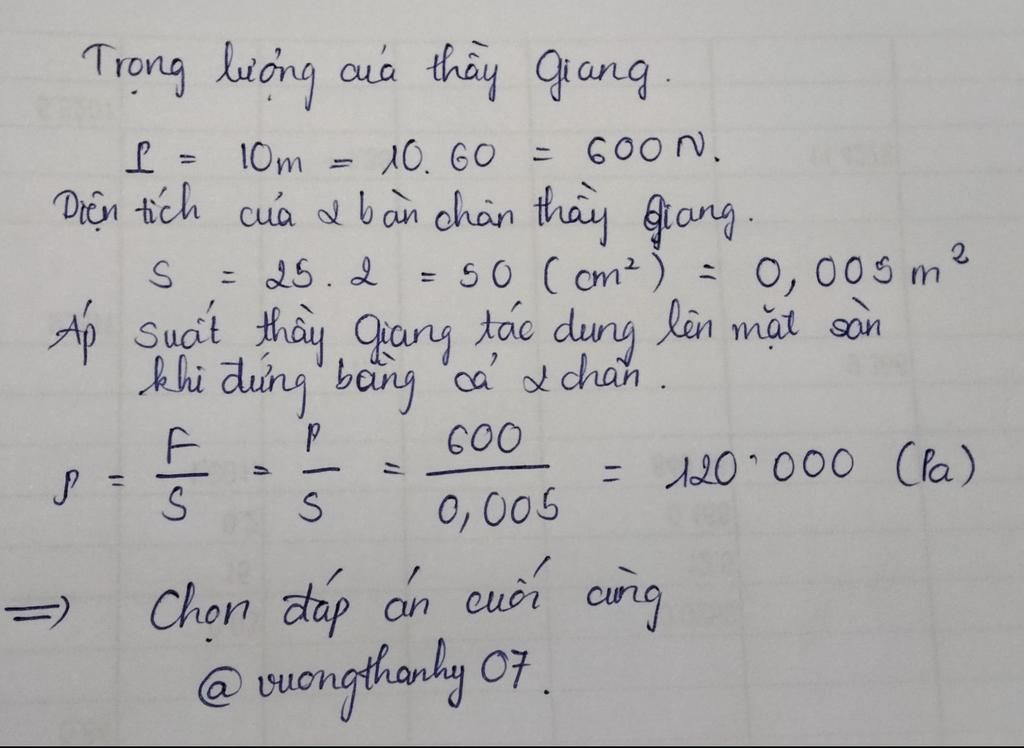 Trọng lượng của thầy Giang.
P = 10m = 10. 60 = 600 N.
Diện tích của 2 bàn chân thầy Giang.
S = 25. 2 = 50 (cm²) = 0,005 m²
Áp suất thầy Giang tác dụng lên mặt sàn
khi đứng bằng cả 2 chân.
p = F/S = P/S = 600/0,005 = 120.000 (Pa)
=> Chọn đáp án cuối cùng
@vuongthanhy07.